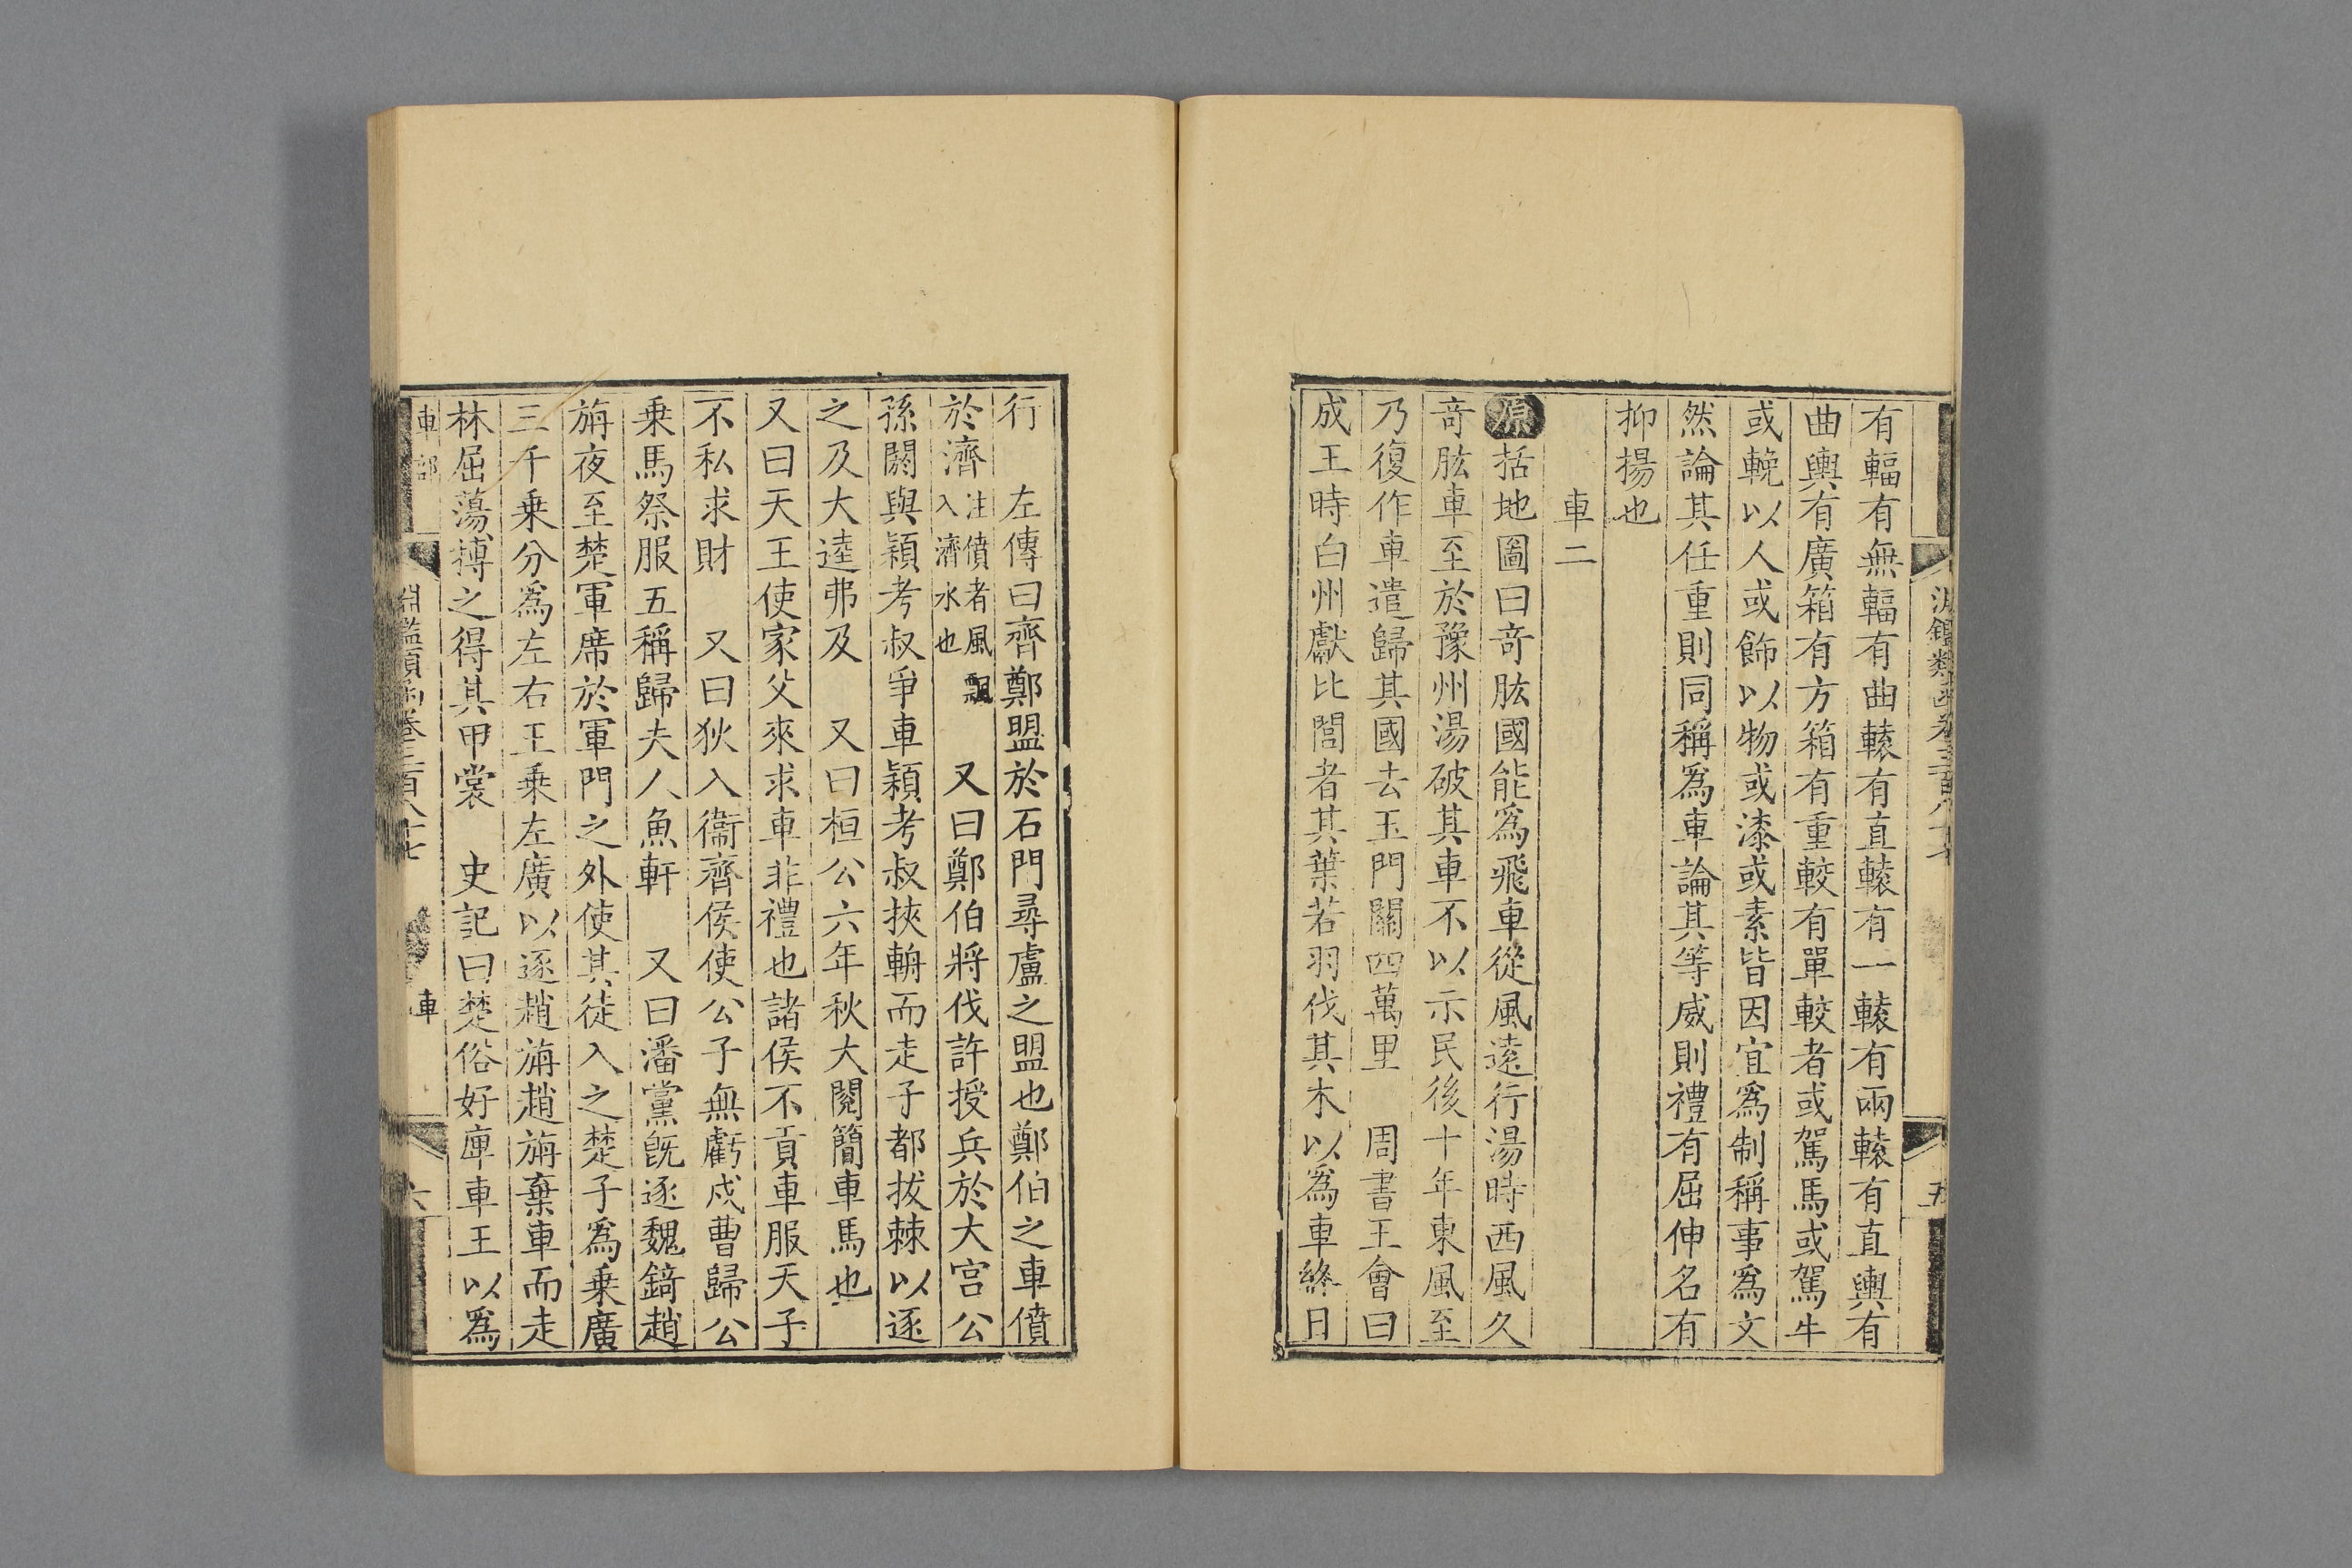 有輻有無輻有曲轅有直轅有一轅有兩轅有直輿有
曲輿有廣箱有方箱有重較有單較者或駕馬或駕牛
或輓以人或飾以物或漆或素皆因宜爲制稱事爲文
然論其任重則同稱爲車論其等威則禮有屈伸名有
抑揚也
車二
原括地圖曰奇肱國能爲飛車從風遠行湯時西風久
奇肱車至於豫州湯破其車不以示民後十年東風至
乃復作車遣歸其國去玉門關四萬里　周書王會曰
成王時白州獻比閭者其葉若羽伐其木以爲車終日
五
行　左傳曰齊鄭盟於石門尋盧之盟也鄭伯之車僨
於濟注僨者風飄入濟水也　又曰鄭伯將伐許授兵於大宮公
孫閼與潁考叔爭車潁考叔挾輈而走子都拔棘以逐
之及大逵弗及　又曰桓公六年秋大閱簡車馬也
又曰天王使家父來求車非禮也諸侯不貢車服天子
不私求財　又曰狄入衞齊侯使公子無虧戍曹歸公
乗馬祭服五稱歸夫人魚軒　又曰潘黨旣逐魏錡趙
旃夜至楚軍席於軍門之外使其徒入之楚子爲乗廣
三千乗分爲左右王乗左廣以逐趙旃趙旃棄車而走
林屈蕩搏之得其甲裳　史記曰楚俗好庳車王以爲
車部
淵鑑類函卷三百八十七
車
六